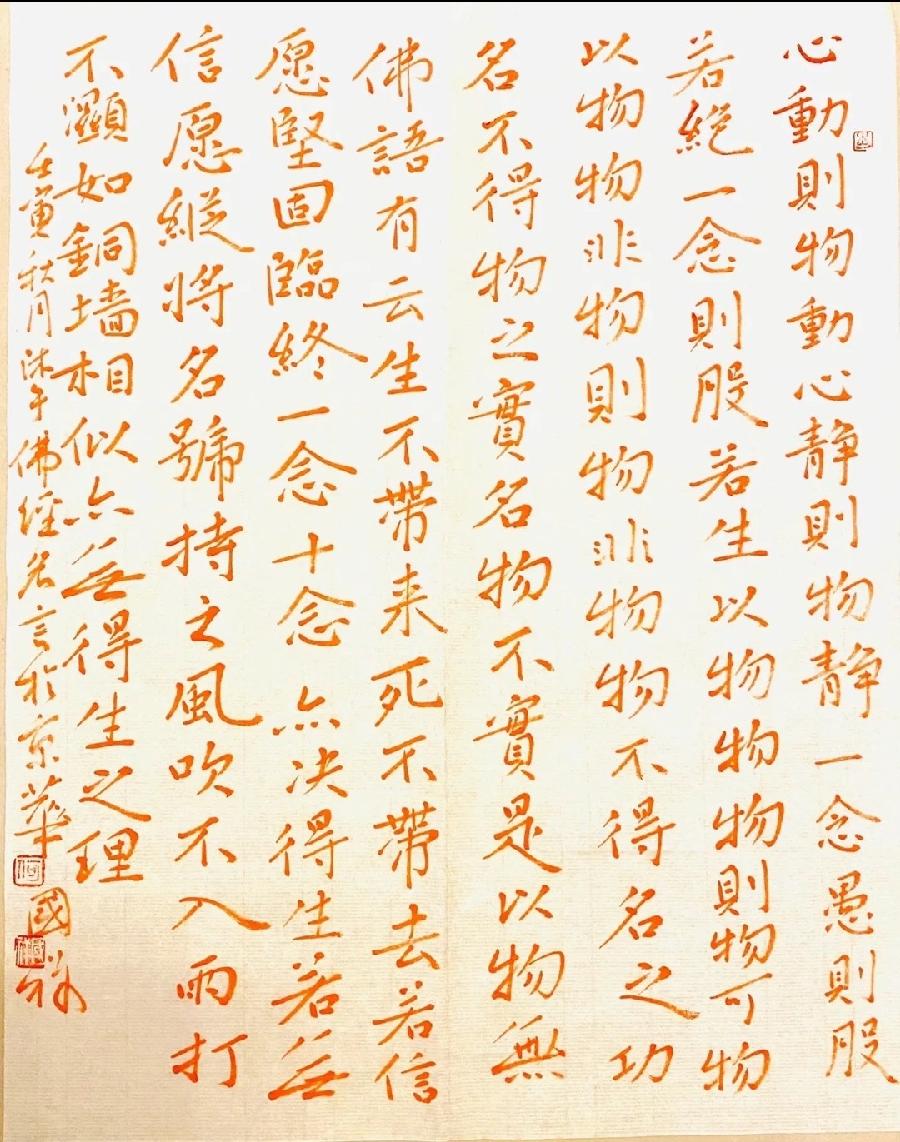 心動則物動心静則物静一念愚則股
若絕一念則股若生以物物物則物可物
以物物非物則物非物物不得名之功
名不得物之實名物不實是以物無
佛語有云生不帶来死不帶去若信
愿堅固臨終一念十念亦决得生若無
信愿縱将名號持之風吹不入雨打
不濕如銅墙相似亦無得生之理
壬寅秋月沐手佛經名言於京華
國祥